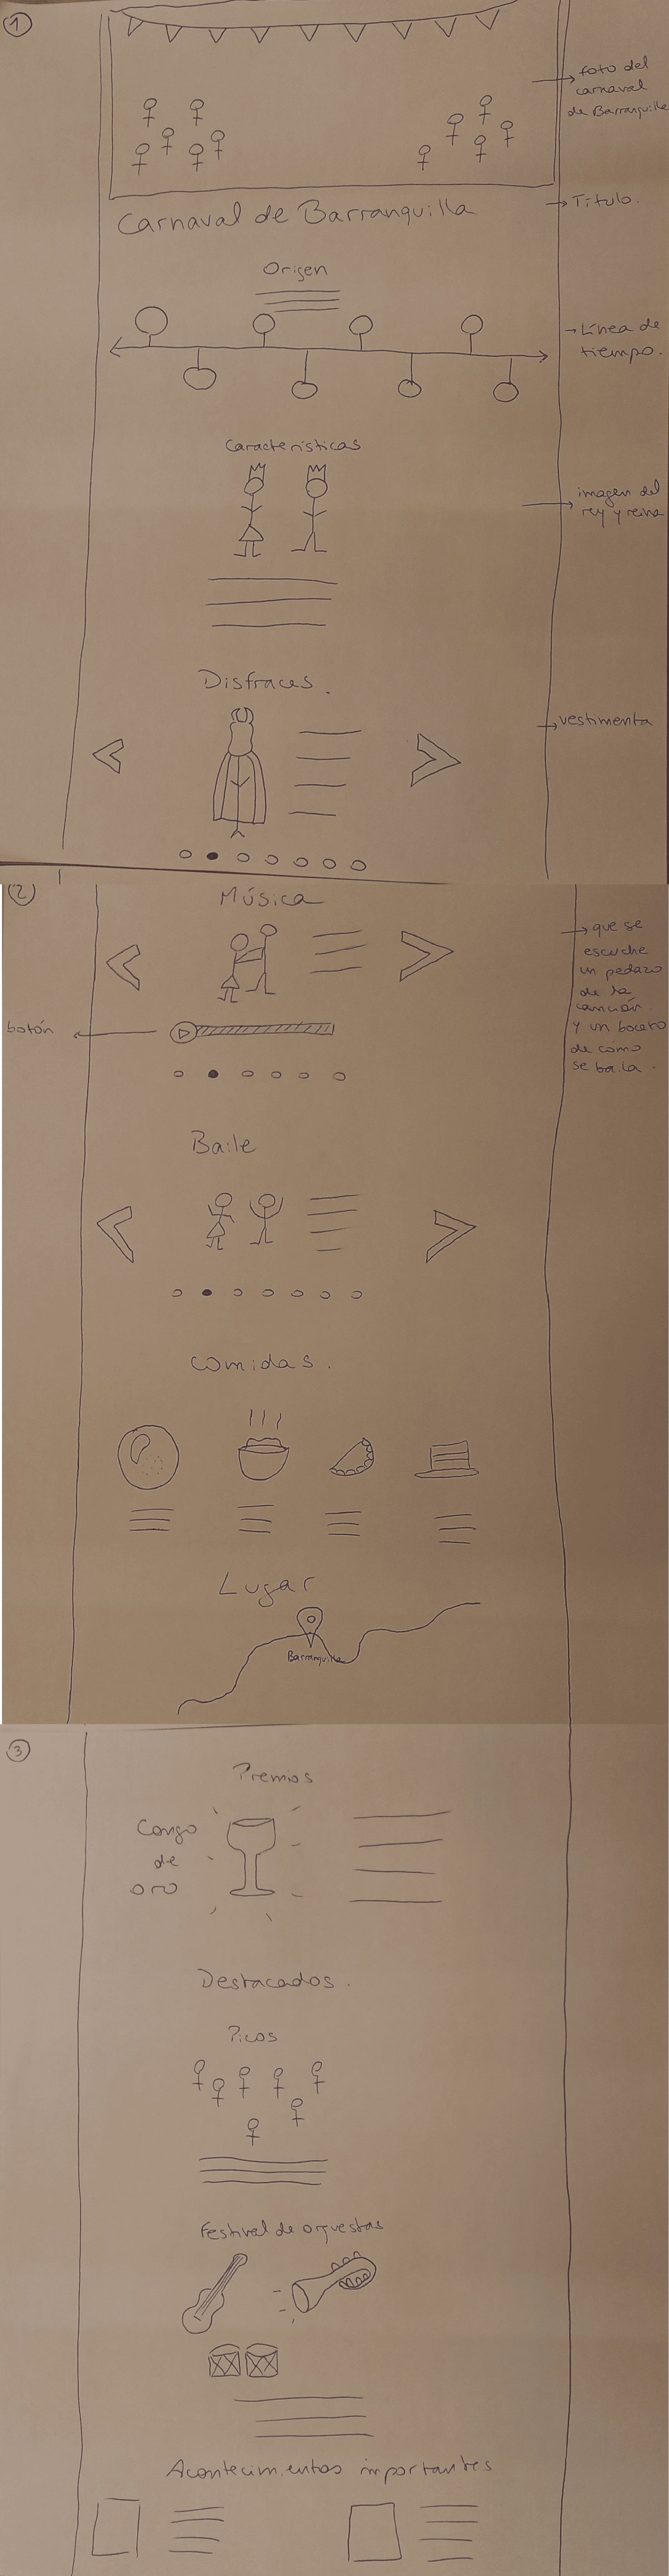 1
foto del
carnaval
de Barranquilla
Carnaval de Barranquilla
Título.
Origen
Línea de
tiempo.
Características
imagen del
rey y reina
Disfraces.
vestimenta
2
Música
que se
escuche
un pedazo
de la
canción
y un boceto
de como
se baila.
botón
Baile
Comidas.
Lugar
Barranquilla
3
Premios
Congo
de
oro
Destacados.
Picos
Festival de orquestas
Acontecimientos importantes